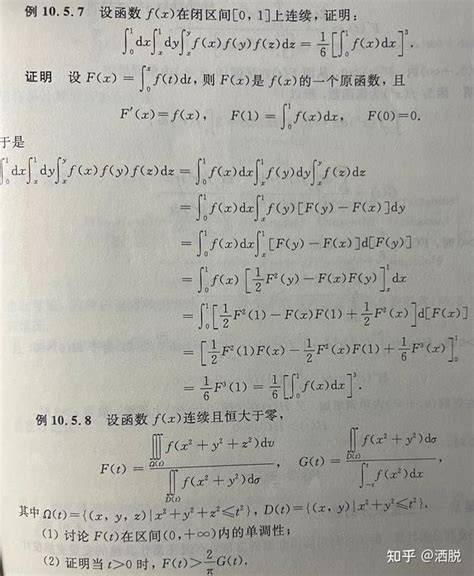 例 10.5.7 设函数 f(x)在闭区间[0, 1]上连续，证明：
∫₀¹dx∫ₓ¹dy∫ₓʸf(x)f(y)f(z)dz = 1/6[∫₀¹f(x)dx]³.
证明 设 F(x)=∫₀ˣf(t)dt，则 F(x)是 f(x)的一个原函数，且
F′(x)=f(x), F(1)=∫₀¹f(x)dx, F(0)=0.
于是
∫₀¹dx∫ₓ¹dy∫ₓʸf(x)f(y)f(z)dz = ∫₀¹f(x)dx∫ₓ¹f(y)dy∫ₓʸf(z)dz
= ∫₀¹f(x)dx∫ₓ¹f(y)[F(y)−F(x)]dy
= ∫₀¹f(x)dx∫ₓ¹[F(y)−F(x)]d[F(y)]
= ∫₀¹f(x)[1/2F²(y)−F(x)F(y)]ₓ¹dx
= ∫₀¹[1/2F²(1)−F(x)F(1)+1/2F²(x)]d[F(x)]
= [1/2F²(1)F(x)−1/2F²(x)F(1)+1/6F³(x)]₀¹
= 1/6F³(1) = 1/6[∫₀¹f(x)dx]³.
例 10.5.8 设函数 f(x)连续且恒大于零，
F(t) = ∭_Ω(t) f(x²+y²+z²)dv / ∬_D(t) f(x²+y²)dσ, G(t) = ∬_D(t) f(x²+y²)dσ / ∫₋ₜᵗf(x²)dx,
其中 Ω(t)={(x, y, z)|x²+y²+z²≤t²}, D(t)={(x, y)|x²+y²≤t²}.
(1) 讨论 F(t)在区间(0,+∞)内的单调性；
(2) 证明当 t>0 时，F(t)>2/πG(t).
知乎 @洒脱